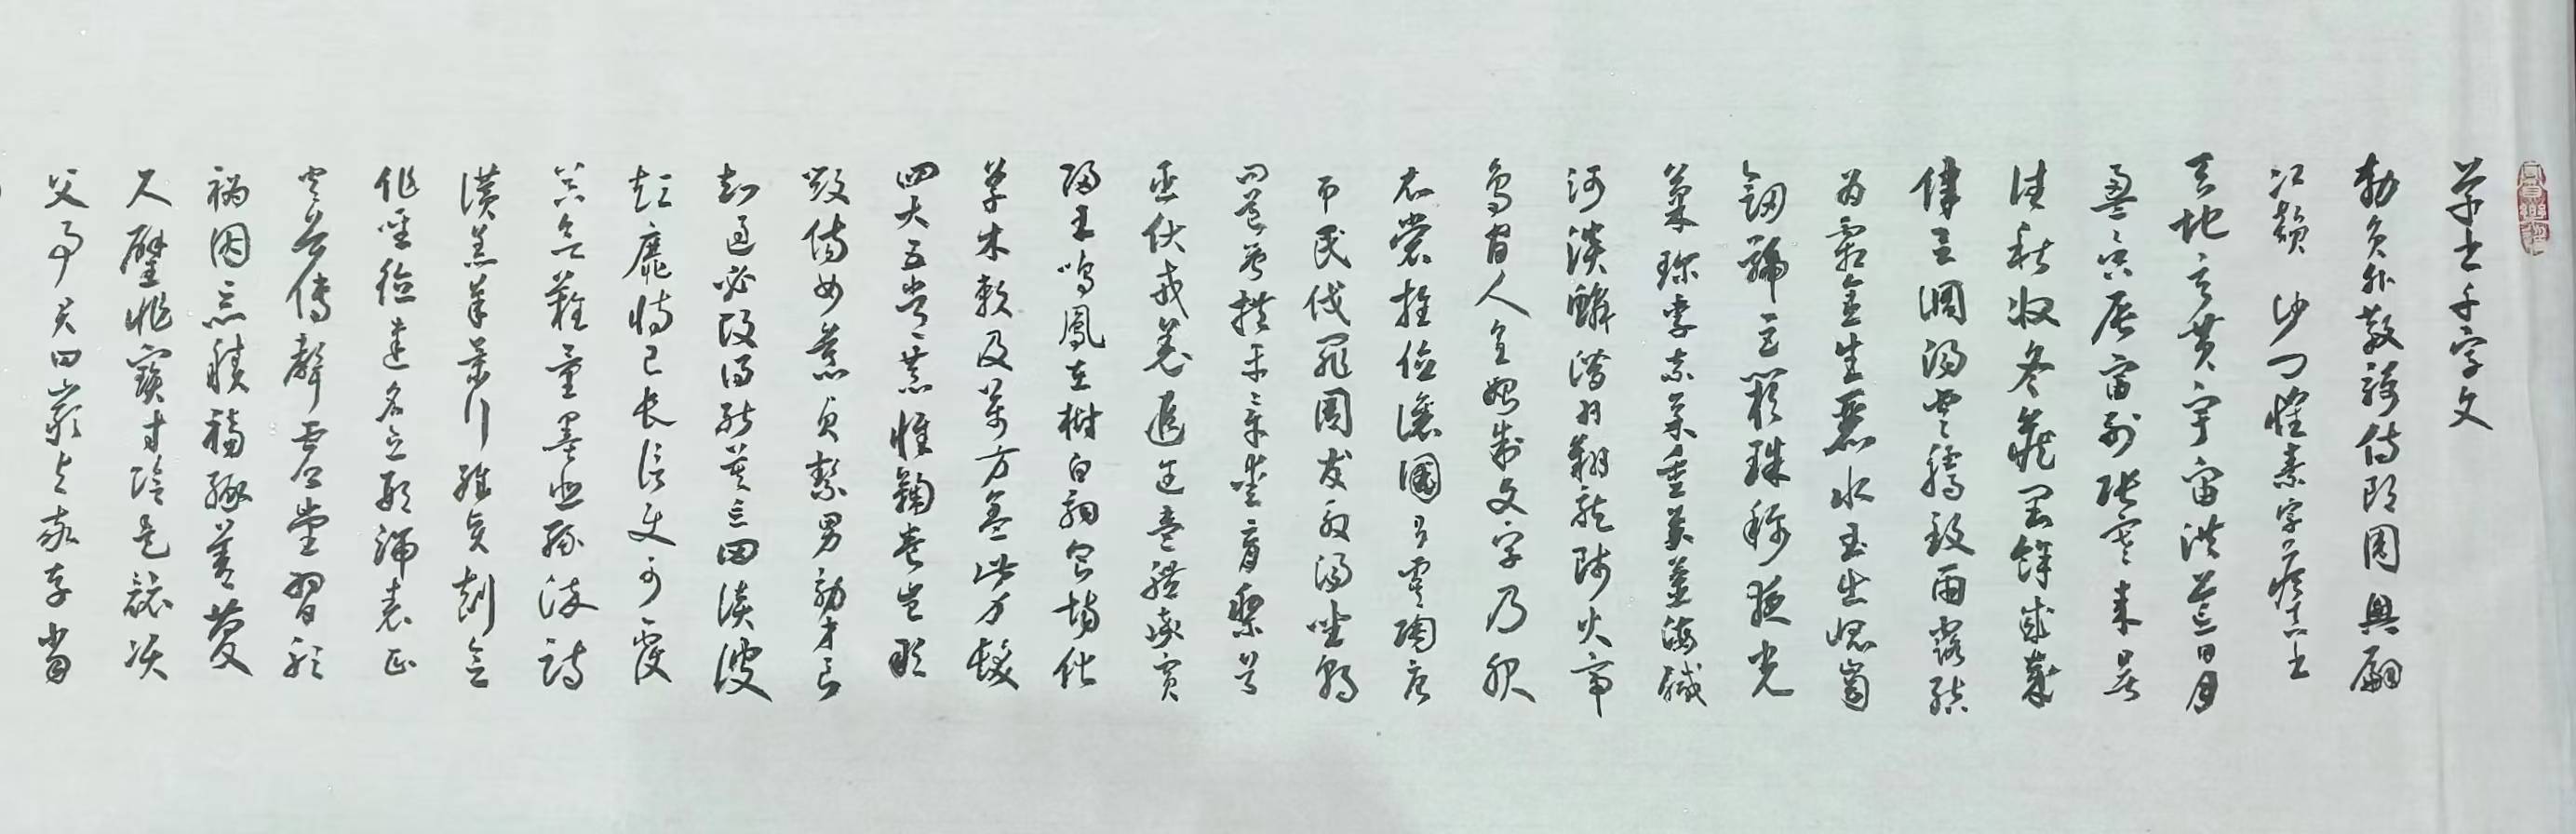 草书千字文
勅員外散騎侍郎周興嗣
次韻 沙门懷素字
天地玄黄宇宙洪荒日月
盈昃辰宿列张寒来暑
往秋收冬藏閏餘成歲
律吕調陽雲騰致雨露結
为霜金生麗水玉出崐崗
劍號巨闕珠稱夜光
菓珍李柰菜重芥薑海鹹
河淡鱗潜羽翔龍师火帝
鳥官人皇始制文字乃服
衣裳推位讓國有虞陶唐
吊民伐罪周發殷湯坐朝
問道垂拱平章愛育黎首
臣伏戎羌遐迩壹體率賓
歸王鳴鳳在樹白駒食場化
草木賴及萬方盖此身髮
四大五常恭惟鞠養豈敢
毁傷女慕貞潔男効才良
知過必改得能莫忘罔談彼
短靡恃己長信使可覆
器欲難量墨悲絲染詩
讚羔羊景行維賢剋念
作聖德建名立形端表正
空谷傳聲虚堂習聽
禍因惡積福缘善慶
尺璧非寶寸陰是競資
父事君曰嚴與敬孝當